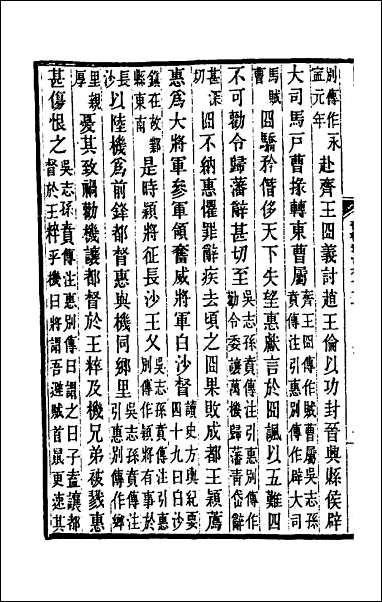 別傳作永寧元年赴齊王冏義討趙王倫以功封晉興縣侯辟
大司馬戶曹掾轉東曹屬齊王冏傳作賊曹屬吳志孫賁傳注引惠別傳作辟大司
馬賊曹冏驕矜僭侈天下失望惠獻言於冏諷以五難四
不可勸令歸藩辭甚切至吳志孫賁傳注引惠別傳作勸令委讓萬機歸藩青岱辭
甚深切冏不納惠懼罪辭疾去頃之冏果敗成都王穎薦
惠爲大將軍參軍領奮威將軍白沙督讀史方輿紀要四十九曰白沙
鎮在故鄴縣東南是時穎將征長沙王乂吳志孫賁傳注引惠別傳作穎將有事於
長沙以陸機爲前鋒都督惠與機同鄉里吳志孫賁傳注引惠別傳作鄉
里親厚憂其致禍勸機讓都督於王粹及機兄弟被戮惠
甚傷恨之吳志孫賁傳注惠別傳曰謂之曰子盍讓都督於王粹乎機曰將謂吾避賊首鼠更速其